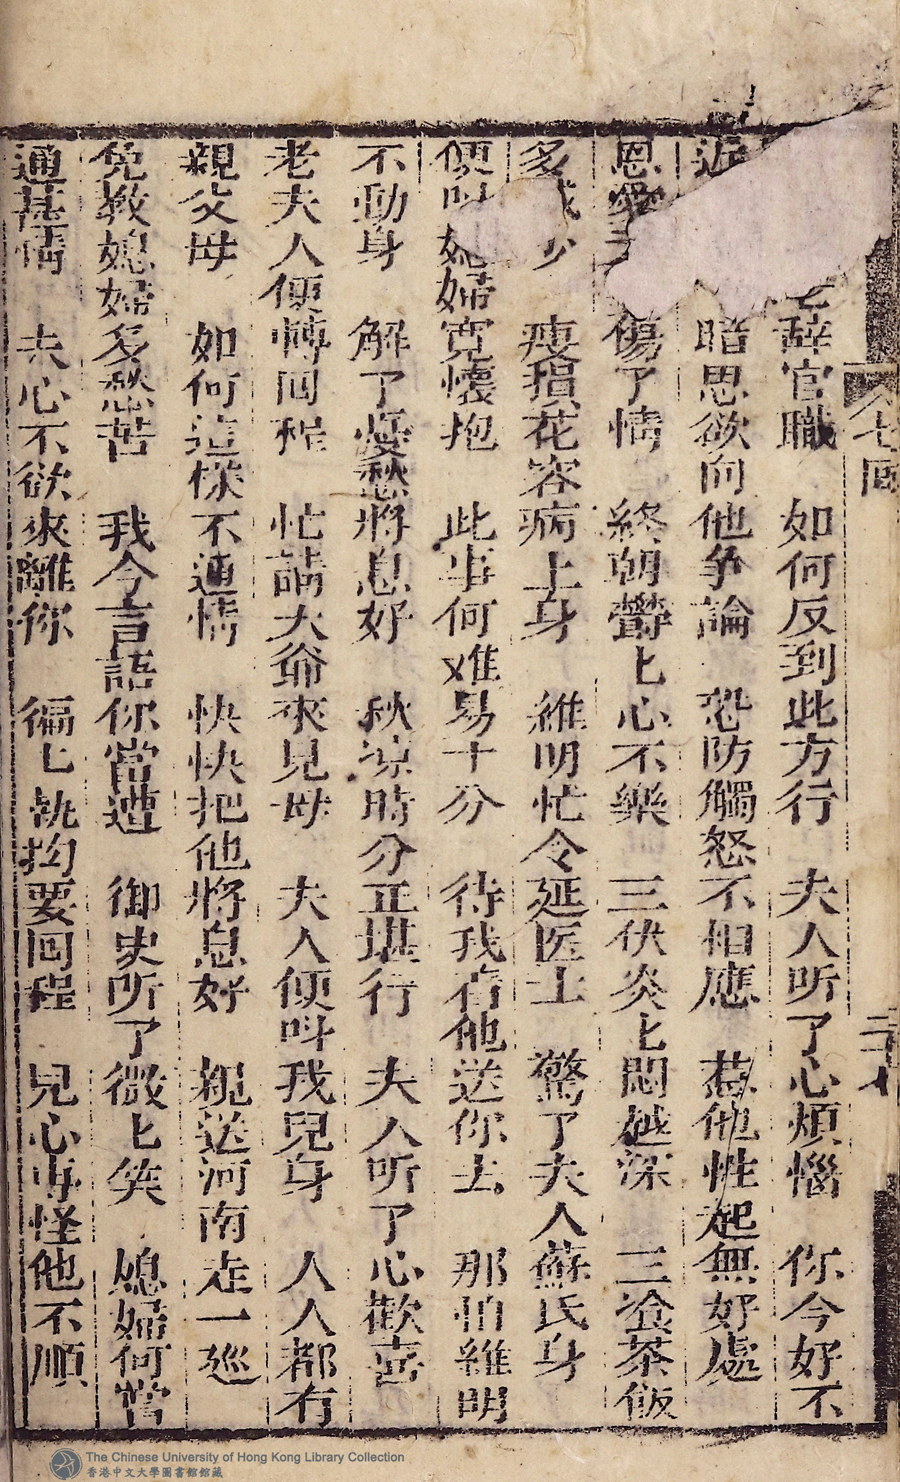 七回
二十七
辞官職 如何反到此方行 夫人听了心煩惱 你今好不
近 暗思欲向他争論 恐防觸怒不相應 惹他性起無好處
恩愛 傷了情 終朝鬱匕心不樂 三伏炎匕悶越深 三飡茶飯
多 少 瘦損花容病上身 維明忙令延医士 驚了夫人蘇氏身
便叫媳婦寬懷抱 此事何难易十分 待我着他送你去 那怕維明
不動身 解了憂愁將息好 秋涼時分正堪行 夫人听了心歡喜
老夫人便轉回程 忙請大爺來見母 夫人便叫我兒身 人人都有
親父母 如何這樣不通情 快快把他將息好 親送河南走一廵
免教媳婦多愁苦 我今言語你當遵 御史所了微匕笑 媳婦何嘗
通甚情 夫心不欲來離你 徧匕執拗要回程 兒心専怪他不順
The Chinese University of Hong Kong Library Collection
香港中文大學圖書館館藏